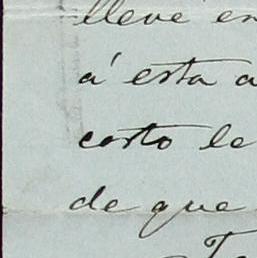 lleve en
á esta a
corto le
de que